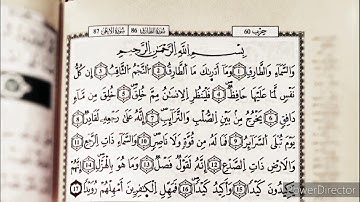 حزب 60 سورة الطارق 86 سورة الأعلى 87
بسم الله الرحمن الرحيم
والسماء والطارق ۝١ وما أدريك ما الطارق ۝٢ النجم الثاقب ۝٣ إن كل
نفس لما عليها حافظ ۝٤ فلينظر الإنسان مم خلق ۝٥ خلق من ماء
دافق ۝٦ يخرج من بين الصلب والترائب ۝٧ إنه على رجعه لقادر ۝٨
يوم تبلى السرائر ۝٩ فما له من قوة ولا ناصر ۝١٠ والسماء ذات الرجع ۝١١
والأرض ذات الصدع ۝١٢ إنه لقول فصل ۝١٣ وما هو بالهزل ۝١٤ إنهم
يكيدون كيدا ۝١٥ وأكيد كيدا ۝١٦ فمهل الكافرين أمهلهم رويدا ۝١٧
PowerDirector